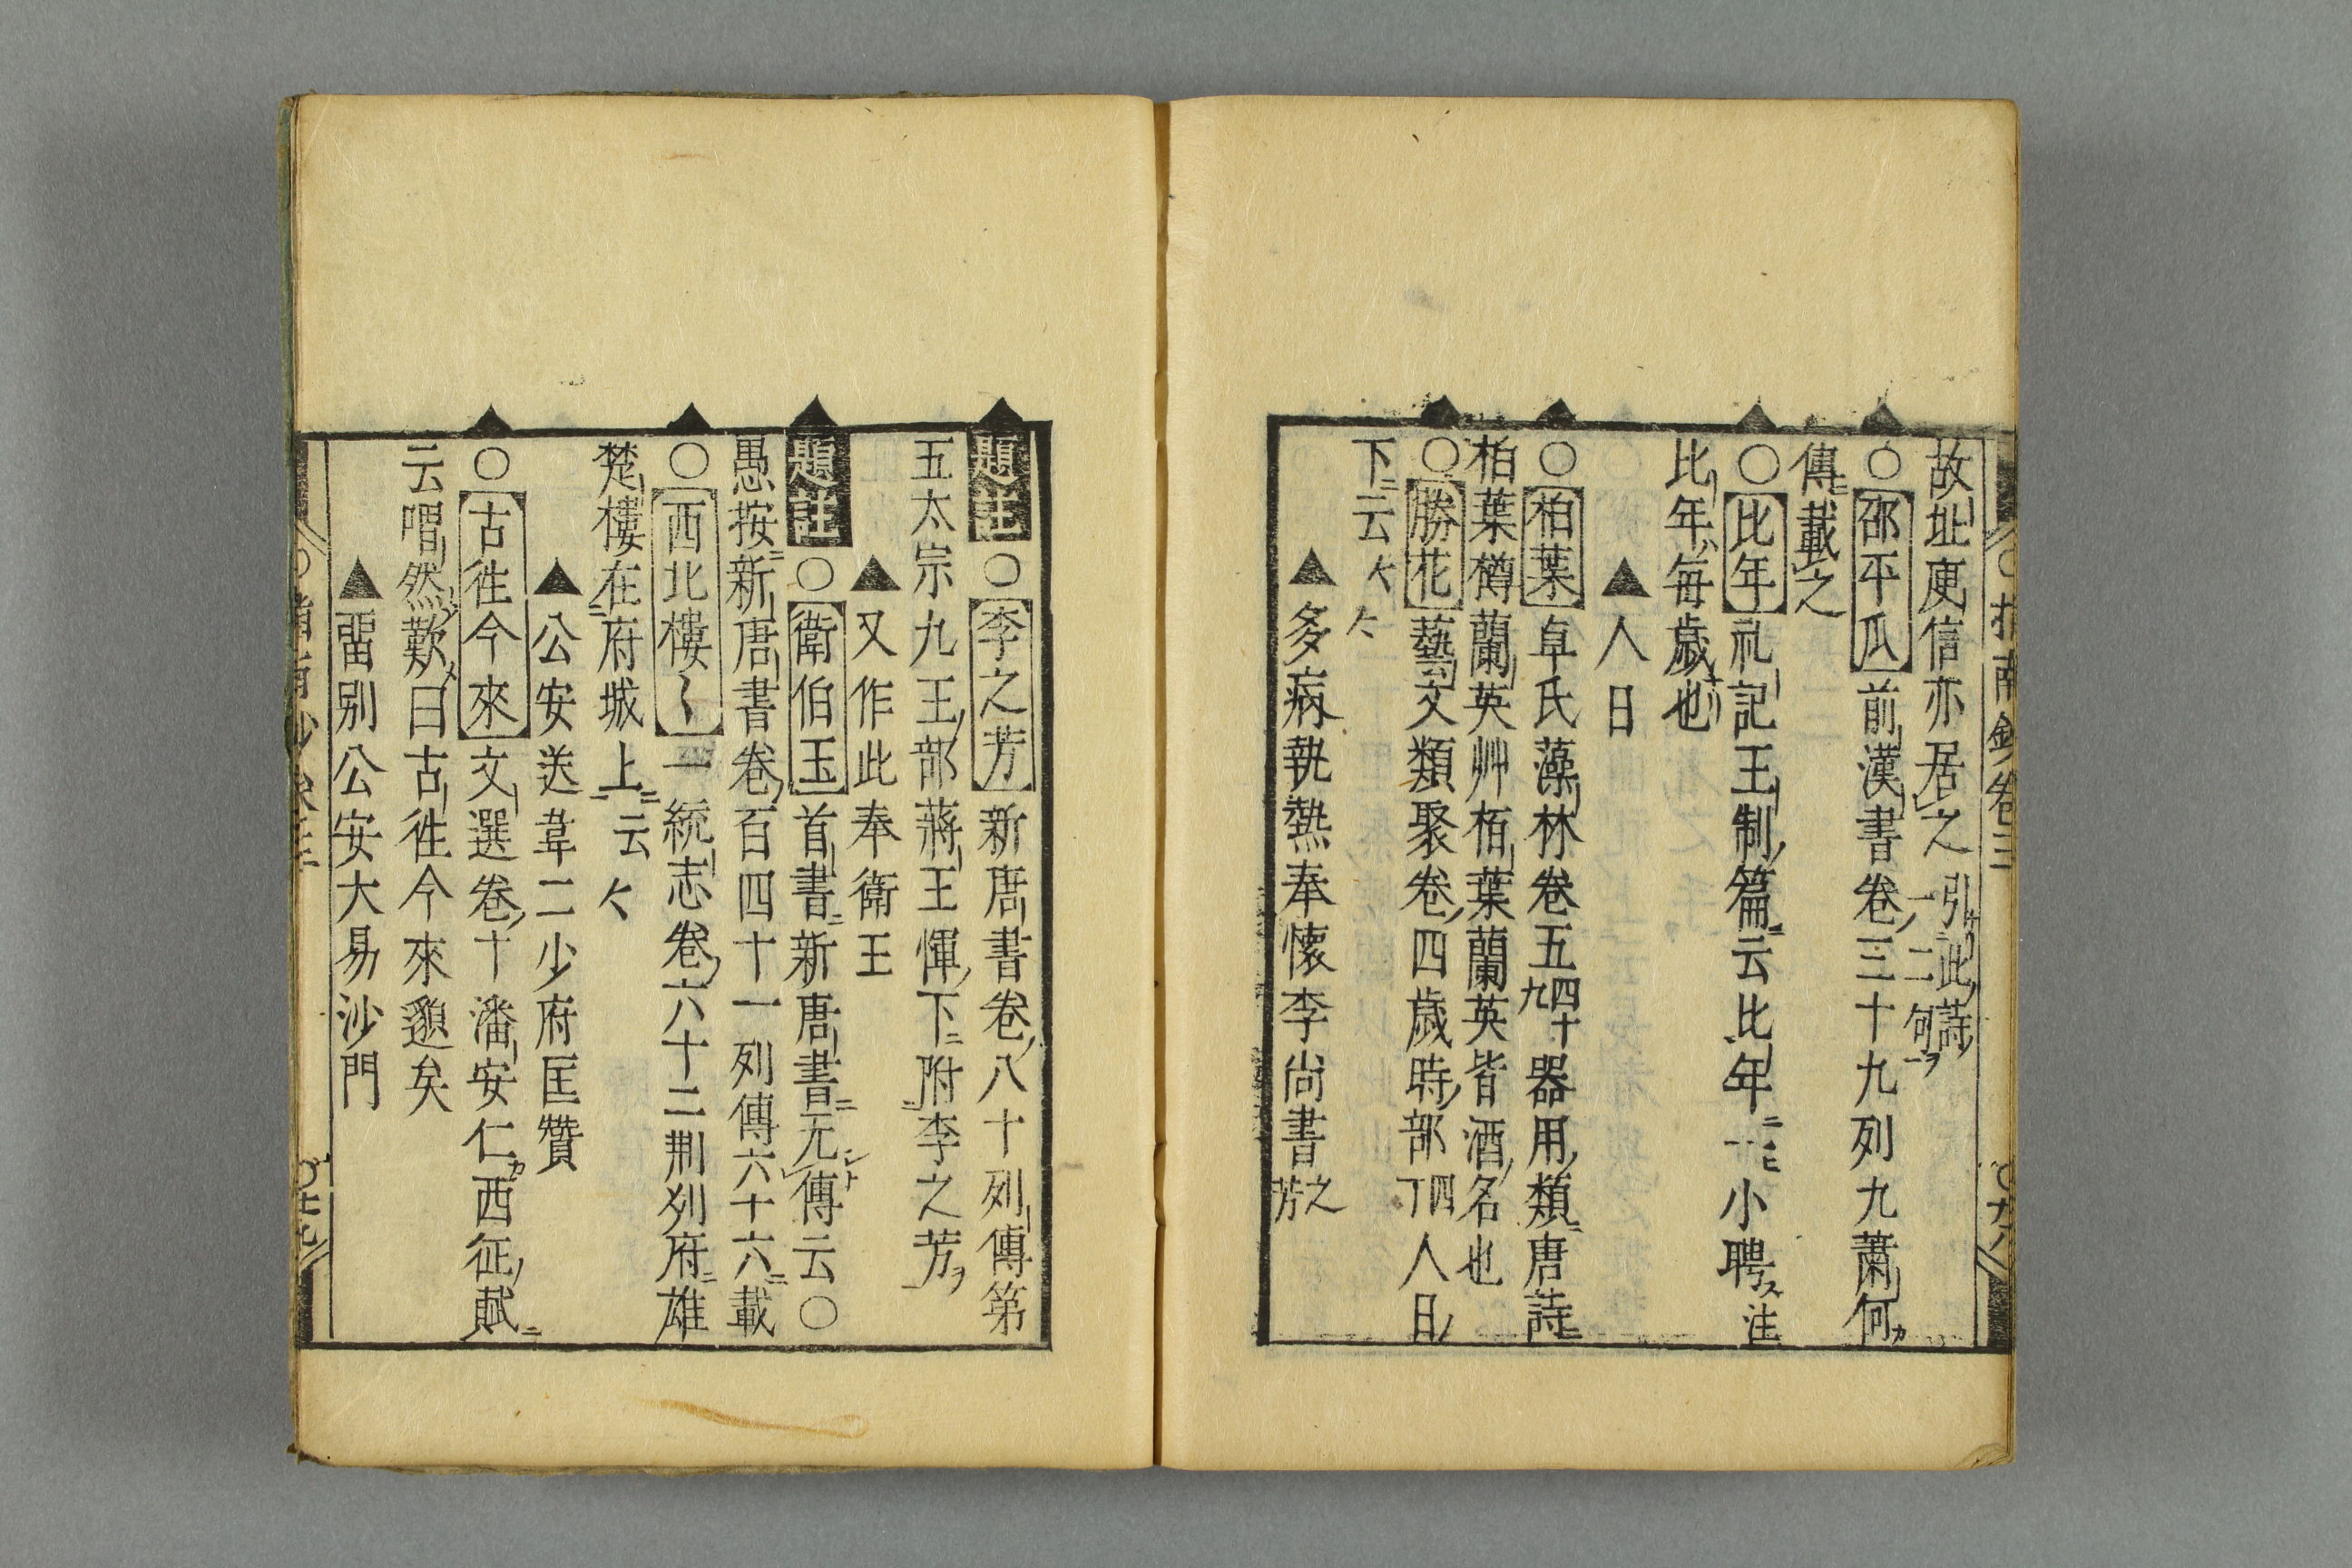 故址庾信亦居之引此詩一二句ヲ
○邵平瓜前漢書卷三十九列九蕭何カ
傳ニ載之
○比年礼記王制篇ニ云比年ニ一ヒ小聘ス注
比年ハ每歲也
▲人日
○柏葉卓氏藻林卷五四十九器用類ニ唐詩ニ
柏葉樽蘭英艸栢葉蘭英皆酒名也
○勝花藝文類聚卷四歲時部四丁人日
下ニ云々
▲多病執熱奉懷李尚書之芳
題註○李之芳新唐書卷八十列傳第
五太宗九王部蔣王惲下ニ附李之芳ヲ
▲又作此奉衛王
題註○衛伯玉首書ニ新唐書ニ无シト傳云○
愚按ニ新唐書卷百四十一列傳六十六ニ載
○西北樓一統志卷六十二荆列府ニ雄
楚樓在府城上ニ云々
▲公安送韋二少府匡贊
○古徃今來文選卷十潘安仁カ西征賦ニ
云喟然歎曰古徃今來邈矣
▲畱别公安大易沙門